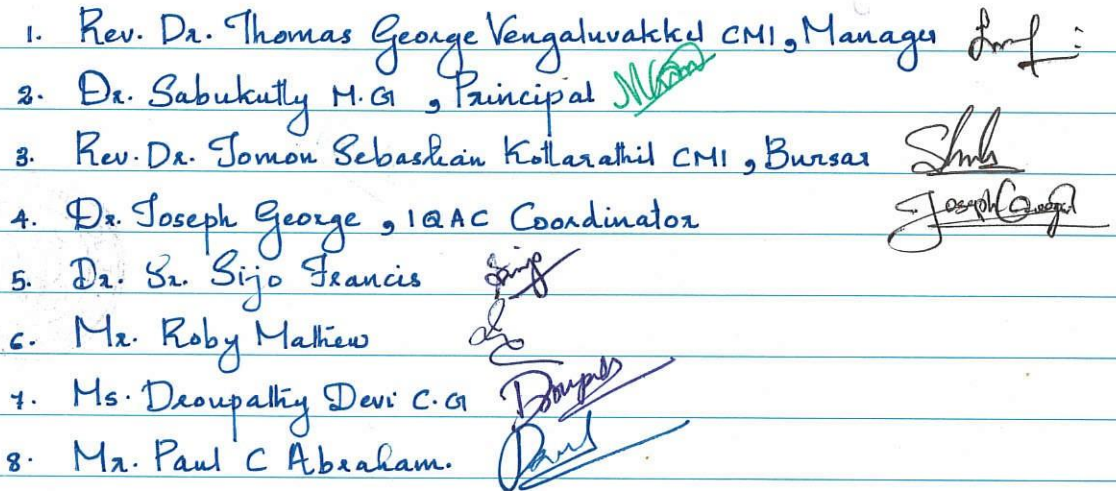 1. Rev. Dr. Thomas George Vengaluvakkel CMI, Manager
2. Dr. Sabukutty M.G, Principal
3. Rev. Dr. Tomon Sebastian Kottarathil CMI, Bursar
4. Dr. Joseph George, IQAC Coordinator Joseph George
5. Dr. Sr. Sijo Francis
6. Mr. Roby Mathew
7. Ms. Droupathy Devi C.G
8. Mr. Paul C Abraham.